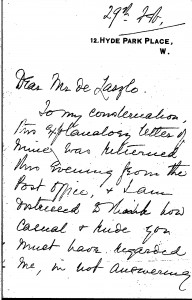 29th Feb.
12, HYDE PARK PLACE,
W.
Dear Mr de Laszlo.
To my consternation,
this explanatory letter of
mine was returned
this evening from the
Post Office, & I am
distressed to think how
casual & rude you
must have regarded
me, in not answering